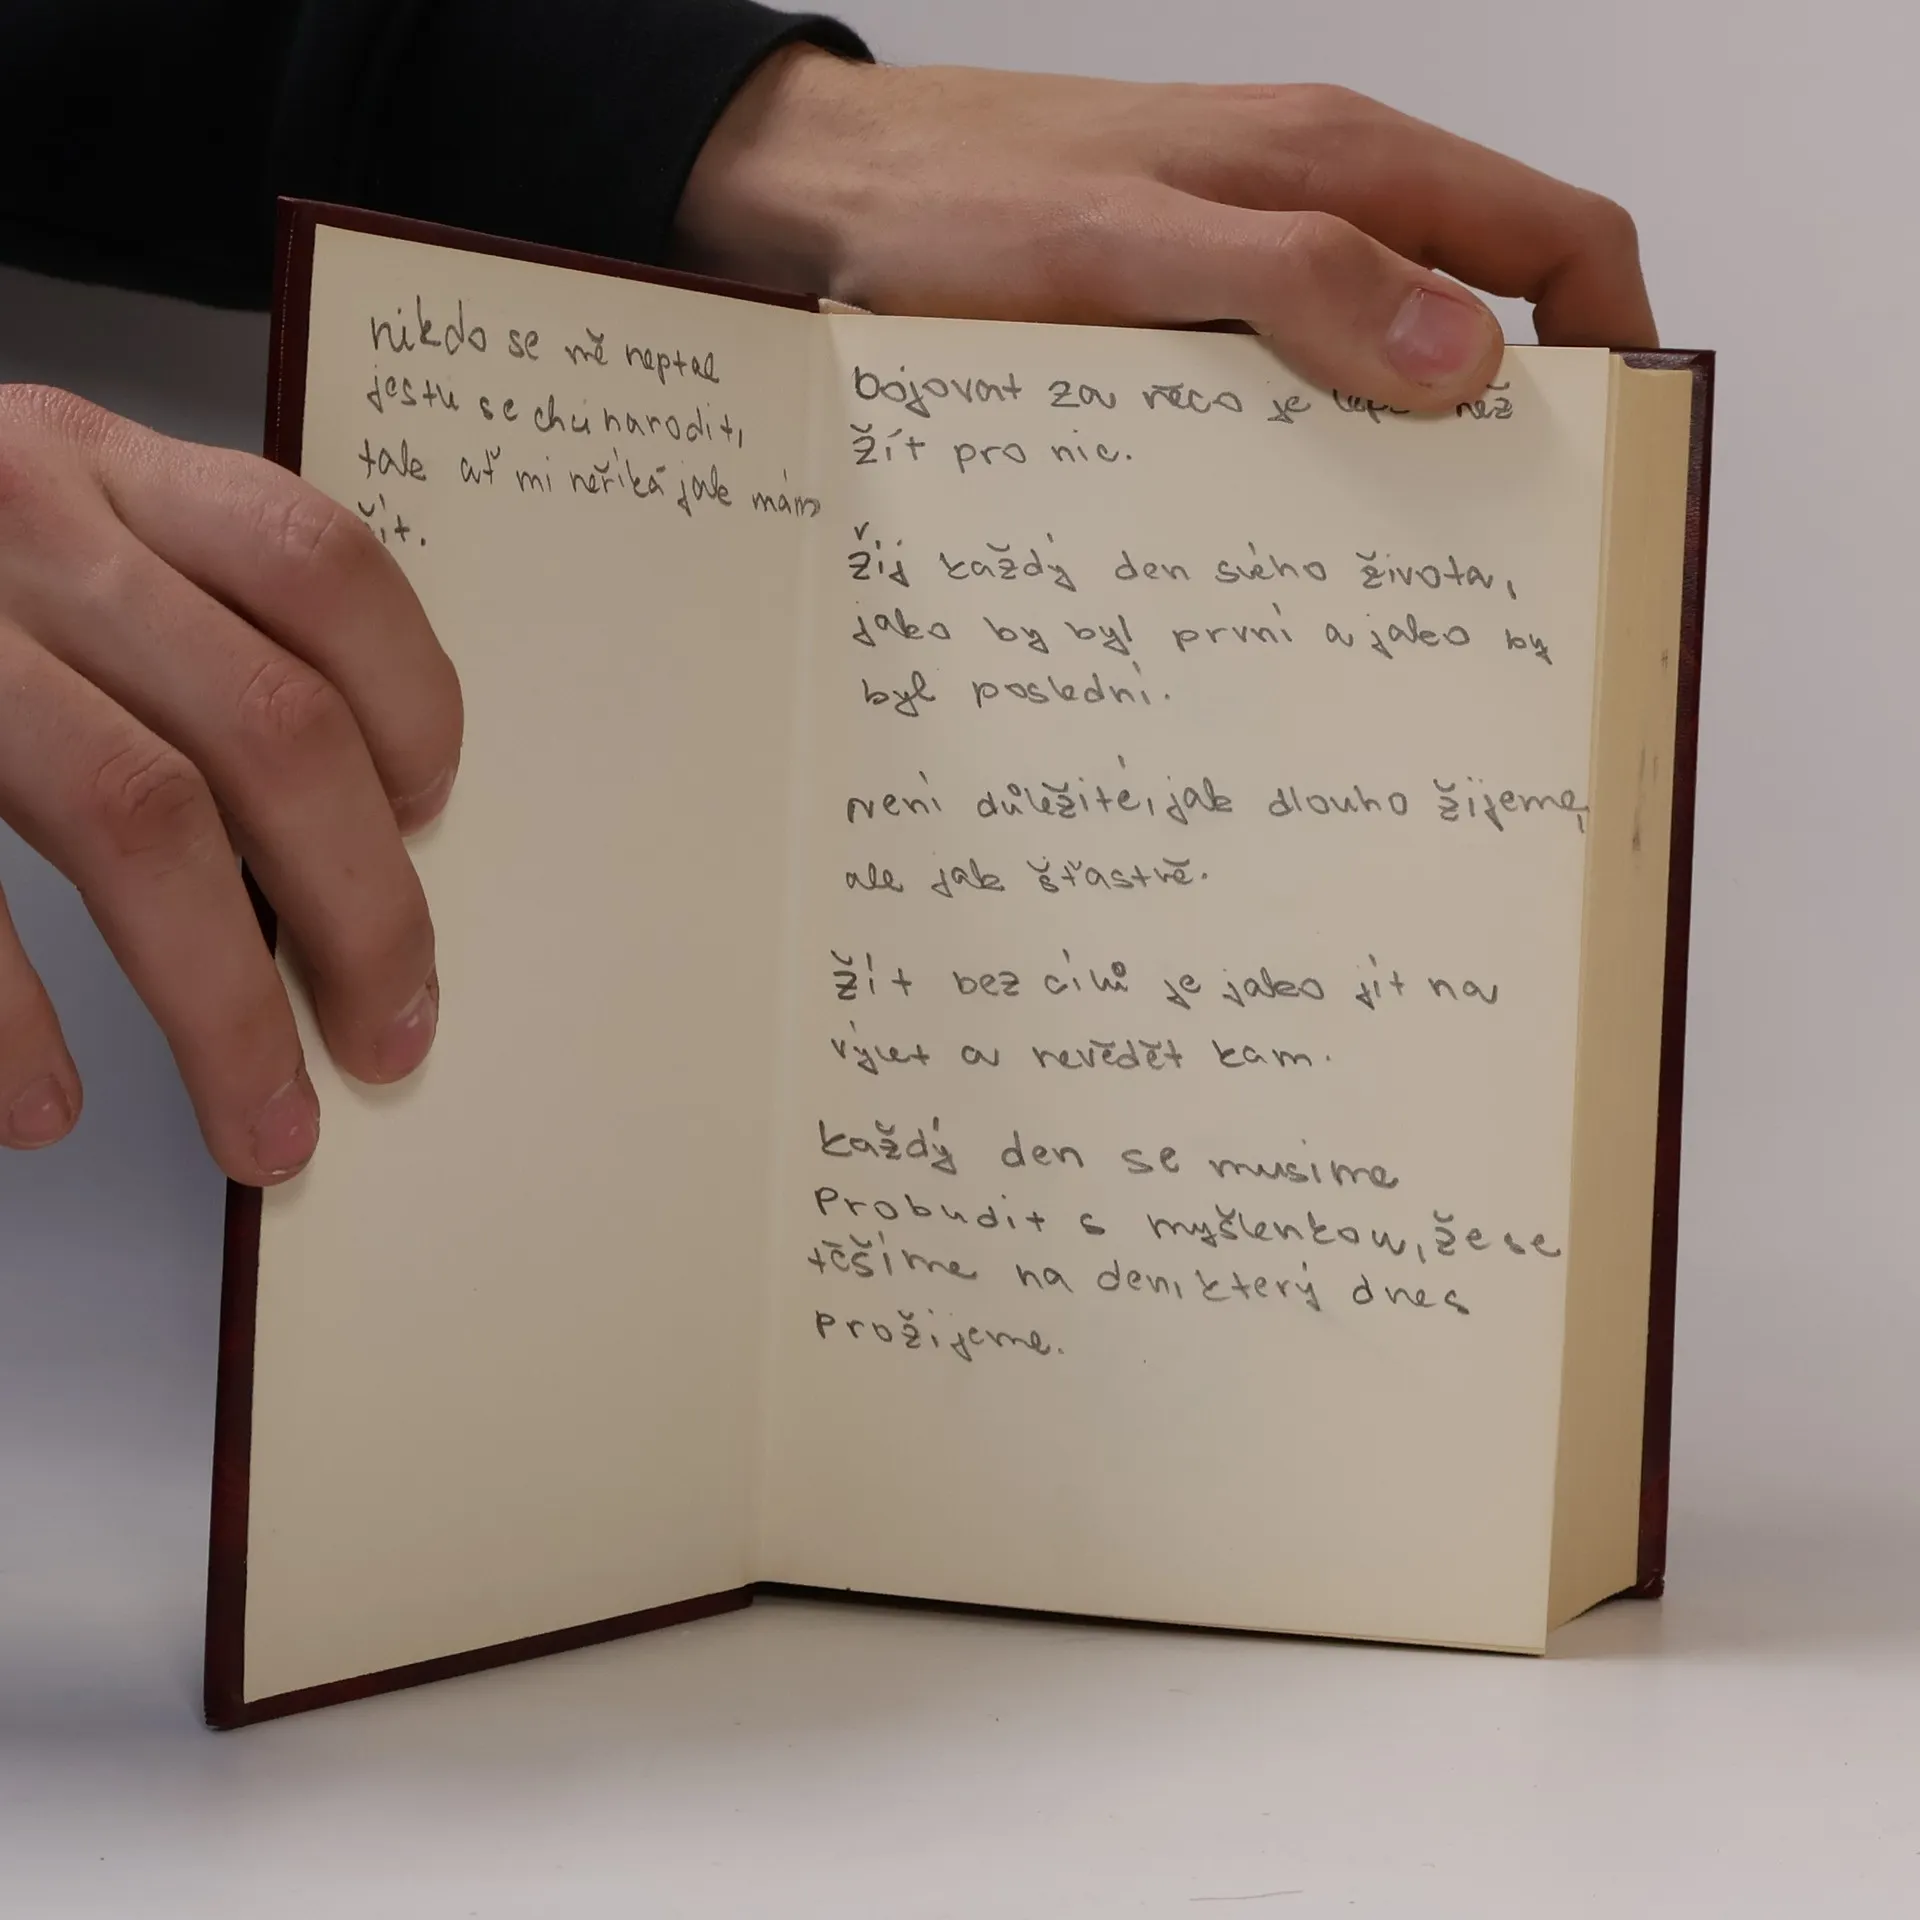 nikdo se mě neptal
jestu se chci narodit,
tak ať mi neříká jak mám
žít.
bojovat za něco je než
žít pro nic.
žij každý den svého života,
jako by byl první a jako by
byl poslední.
není důležité, jak dlouho žijeme,
ale jak šťastně.
žít bez cílů je jako jít na
výlet a nevědět kam.
každý den se musíme
probudit s myšlenkou, že se
těšíme na den, který dnes
prožijeme.